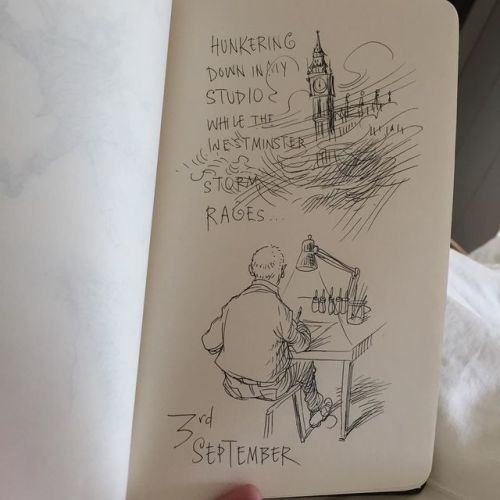 HUNKERING
DOWN IN MY
STUDIO
WHILE THE
WESTMINSTER
STORM
RAGES...
3rd
SEPTEMBER